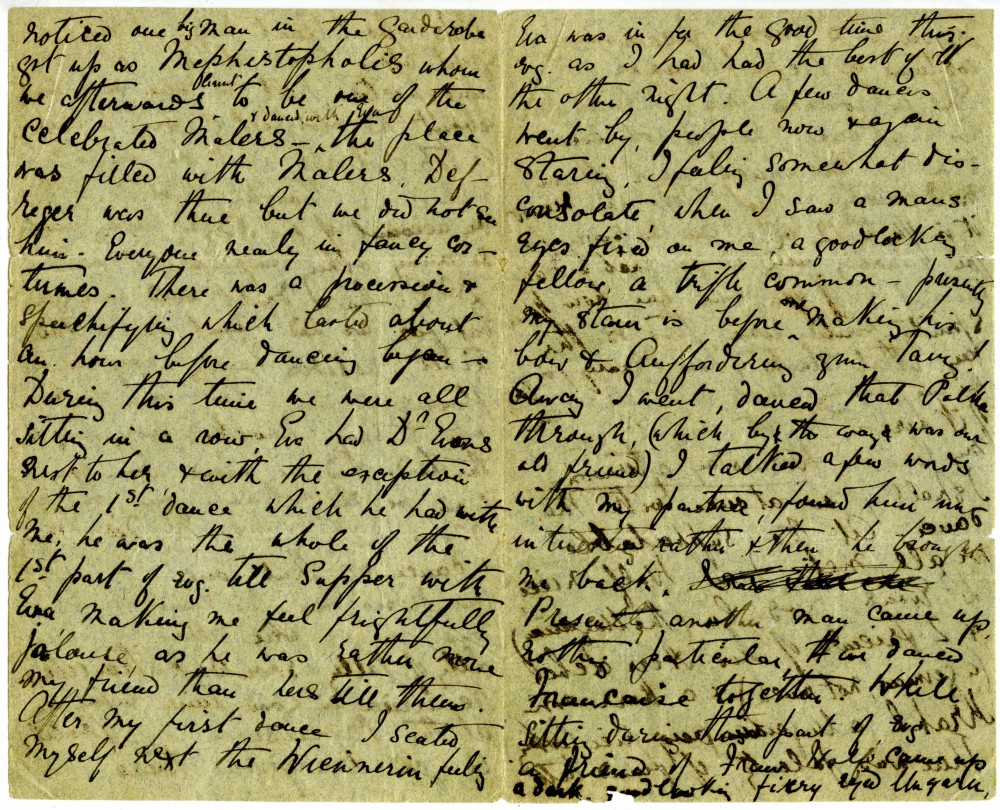 noticed one big man in the Garderobe
got up as Mephistopholis whom
we afterwards learnt to be one of the
celebrated Malers – & danced with the place
was filled with Malers. Def-
reger was there but we did not see
him. Everyone nearly in fancy cos-
tumes. There was a procession &
speechifying which lasted about
an hour before dancing began –
During this time we were all
sitting in a row, Eva had Dr Evans
next to her, & with the exception
of the 1st dance which he had with
me, he was the whole of the
1st part of evg. till Supper with
Eva making me feel frightfully
jalouse, as he was rather more
my friend than hers till then.
After my first dance I seated
myself next the Wiennerin, fully
Eva was in for the good time this
evg. as I had had the best of it
the other night. A few dances
went by, people now & again
staring, I feeling somewhat dis-
consolate, when I saw a mans
eyes fixed on me, a goodlooking
fellow, a trifle common – presently
my starer is before me making his
bow & "Aufforderung zum Tanz"!
Away I went, danced that Polka
through, (which by the way was our
old friend) I talked a few words
with my partner, found him un-
interesting rather & then he brought
me back.
Presently another man came up,
nothing particular, & we danced
Francaise together. While
sitting during this part of evg
a friend of Frau Holf came up
a dark, goodlooking fiery eyed Ungarn,